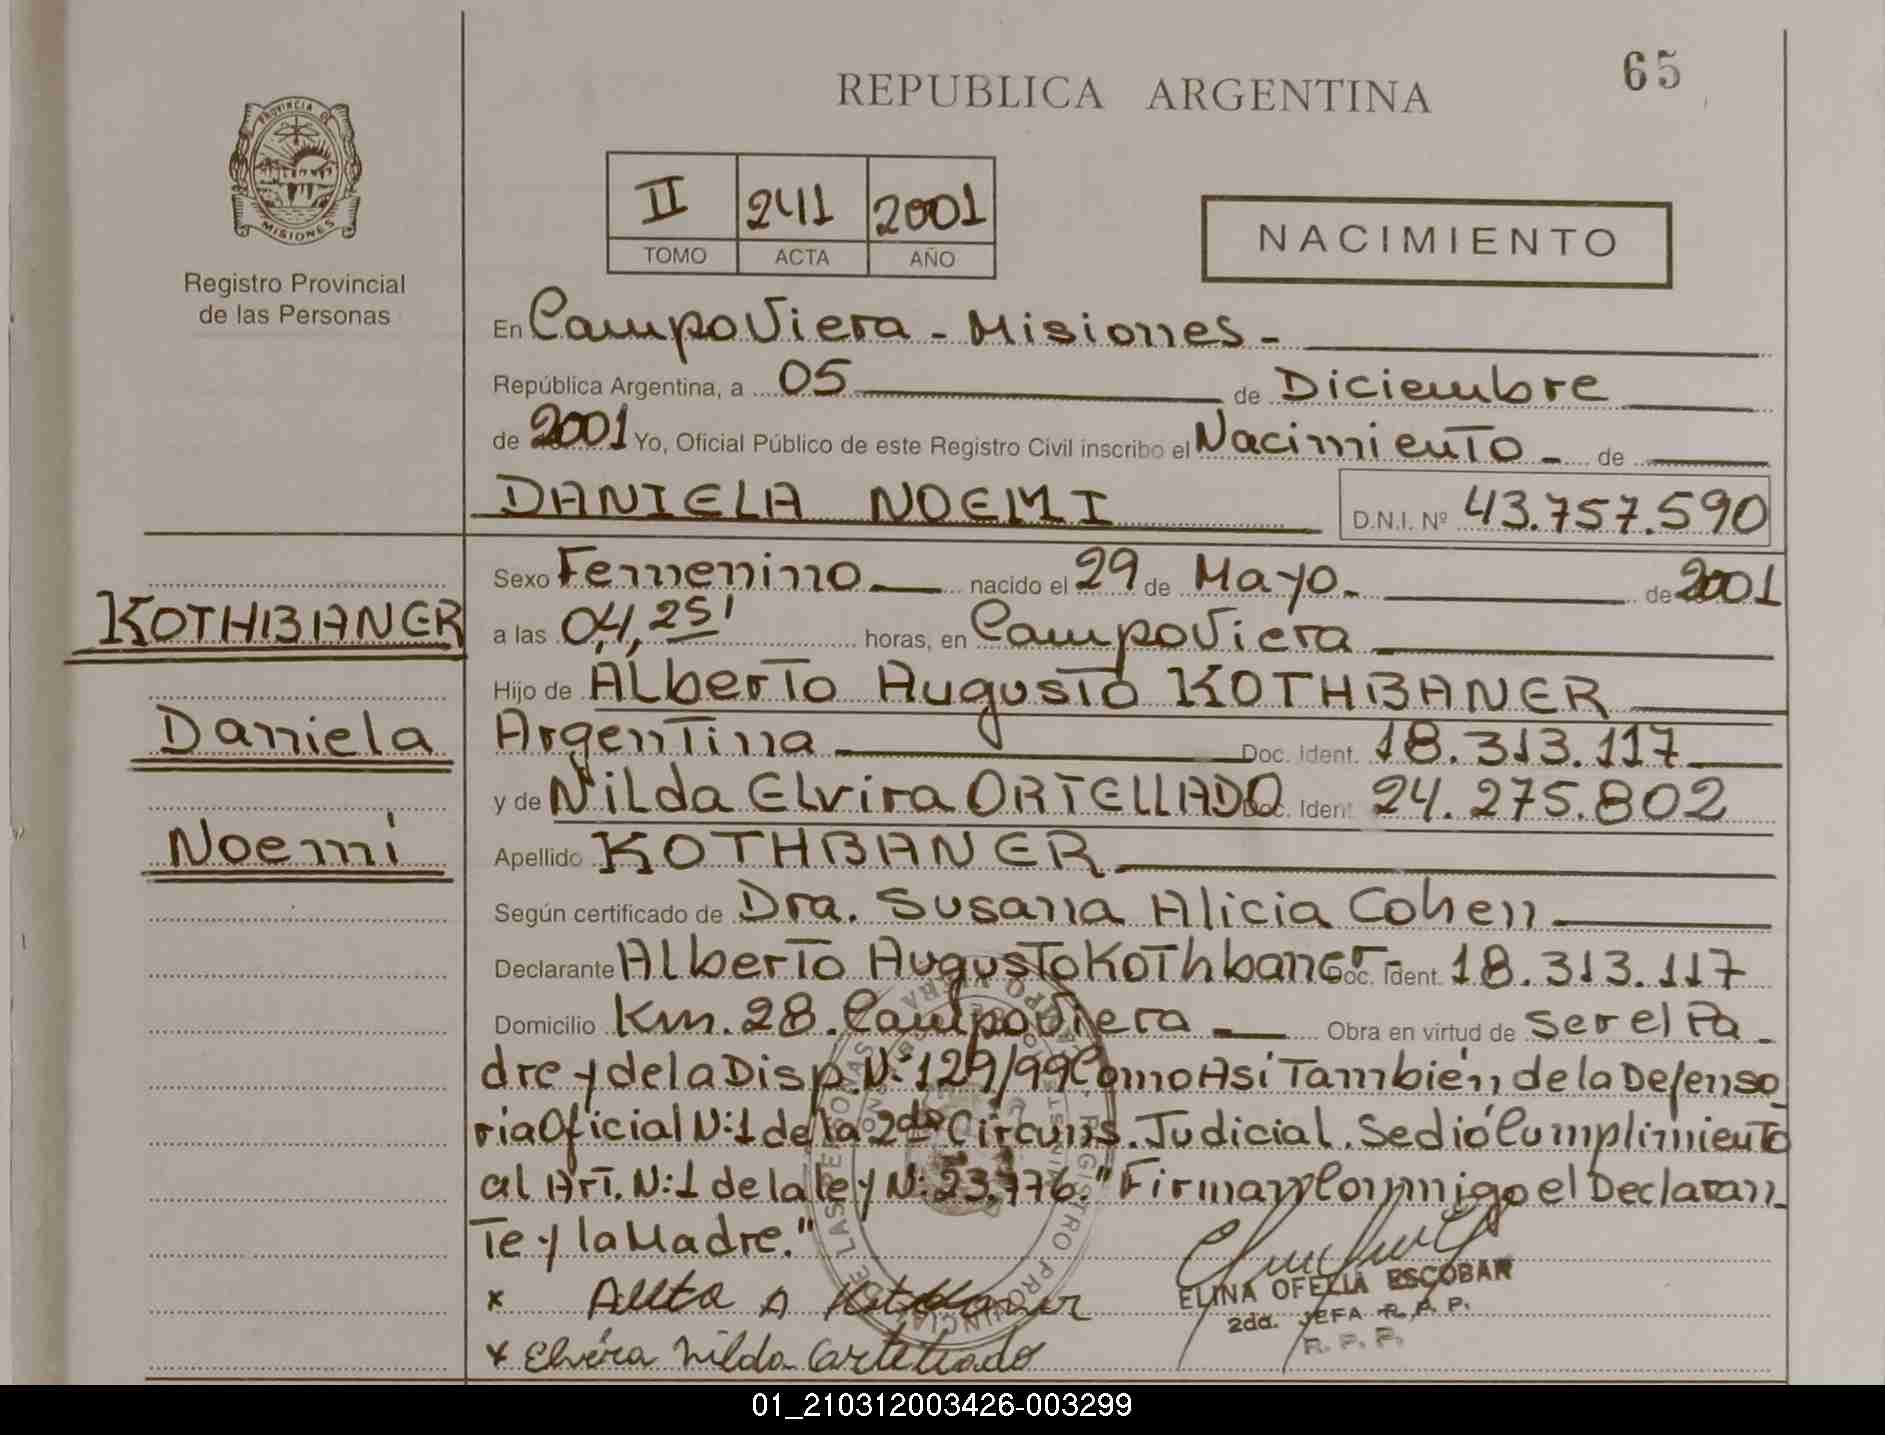 65
REPUBLICA ARGENTINA
PROVINCIA DE
MISIONES
Registro Provincial
de las Personas
II 241 2001
TOMO ACTA AÑO
NACIMIENTO
En Campo Viera - Misiones -
República Argentina, a 05 de Diciembre
de 2001 Yo, Oficial Público de este Registro Civil inscribo el Nacimiento - de
DANIELA NOEMI D.N.I. Nº 43.757.590
KOTHBANER
Daniela
Noemí
Sexo Femenino nacido el 29 de Mayo. de 2001
a las 04,25' horas, en Campo Viera
Hijo de Alberto Augusto KOTHBANER
Argentina Doc. Ident. 18.313.117
y de Nilda Elvira ORTELLADO Doc. Ident. 24.275.802
Apellido KOTHBANER
Según certificado de Dra. Susana Alicia Cohen
Declarante Alberto Augusto Kothbaner Doc. Ident. 18.313.117
Domicilio Km. 28. Campo Viera Obra en virtud de ser el Pa-
dre y de la Disp. N: 129/99 Como Así También de la Defenso-
ría Oficial N:1 de la 2da Circuns. Judicial. Se dió Cumplimiento
al Art. N:1 de la ley N: 23.776." Firman Conmigo el Declaran-
te y la Madre."
ELINA OFELIA ESCOBAR
2da. JEFA R. P. P.
R. P. P.
x Elvira Nilda
01_210312003426-003299